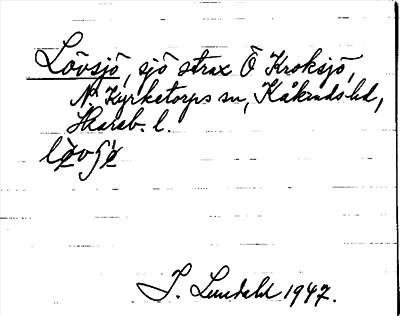 Lövsjö, sjö strax Ö Kroksjö,
N. Kyrketorps sn, Kåkinds hd,
Skarab. l.
J. Lundahl 1947.